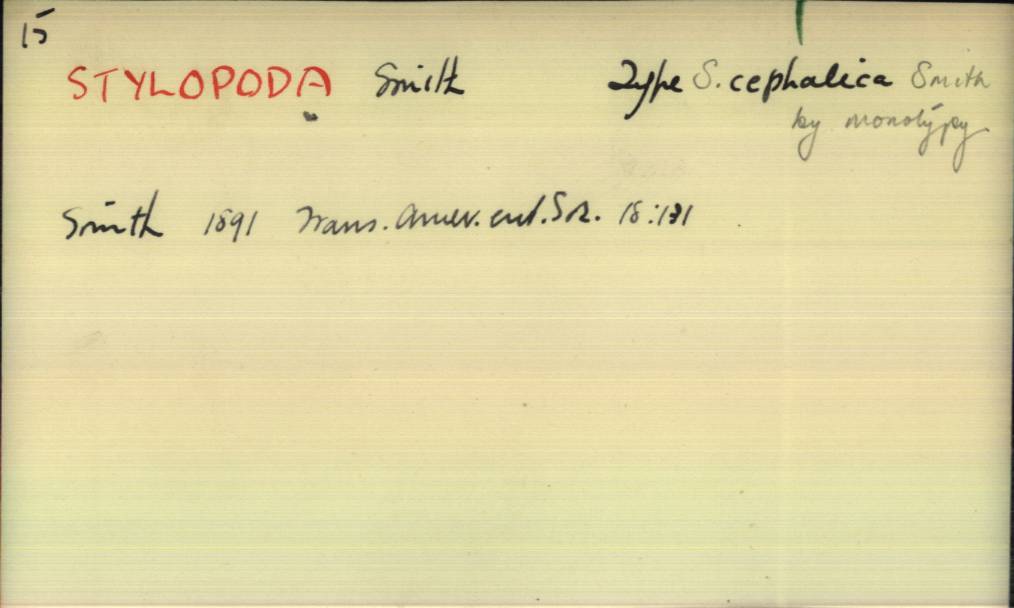 15
STYLOPODA Smith Type S. cephalica Smith
by monotypy
Smith 1891 Trans. Amer. ent. Soc. 18:131